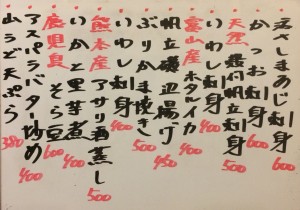 活〆さしまあじ刺身 600
かつお刺身 600
天然 殻付帆立刺身 500
富山産 ホタルイカ 400
いわし刺身
帆立磯辺揚げ 500
ぶりかま焼き 450
いわし刺身 400
熊本産 アサリ酒蒸し 500
いかと里芋煮 400
鹿児島 そら豆 600
アスパラバター炒め 400
山うど天ぷら 380